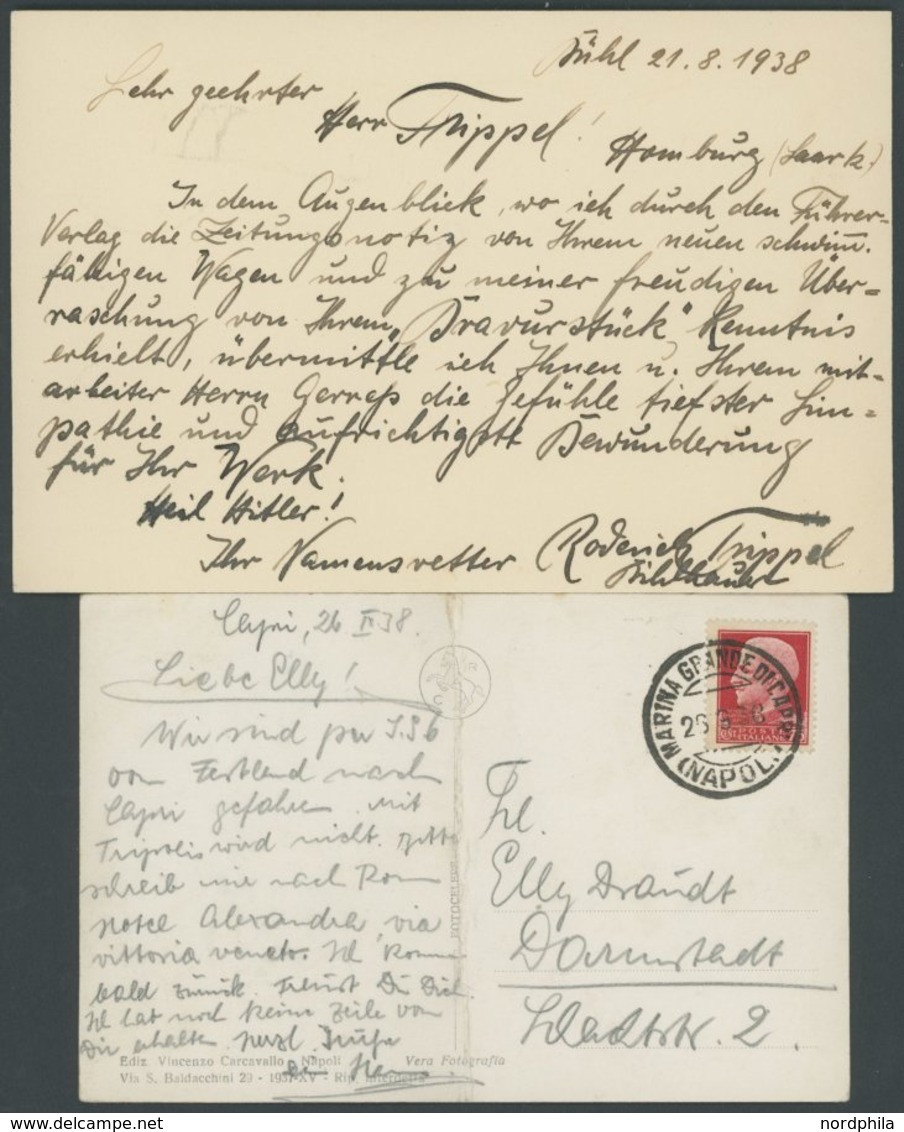 Bühl 21.8.1938
Sehr geehrter
Herr Trippel!
Homburg (Saarpf.)
In dem Augenblick, wo ich durch den Führer-
Verlag die Zeitungsnotiz von Ihrem neuen schwimm-
fähigen Wagen und zu meiner freudigen Über=
raschung von Ihrem „Bravurstück" Kenntnis
erhielt, übermittle ich Ihnen u. Ihrem mit-
arbeiter Herrn die Gefühle tiefster Sim=
pathie und aufrichtigster Bewunderung
für Ihr Werk.
Heil Hitler!
Ihr Namensvetter Roderich Trippel
Bildhauer
Capri, 26 38.
Liebe Elly!
Wir sind per
vom Festland nach
Capri gefahren. Mit
Tripolis wird nicht. Bitte
schreib mir nach Rom
Hotel Alexandra, via
vittoria veneto. Ich komme
bald zurück. Freust Du Dich.
Ich hab noch keine Zeile von
Dir erhalten. Herzl. Grüße
MARINA GRANDE DI CAPRI
(NAPOLI)
POSTE
ITALIANE
Frl.
Elly Draudt
Darmstadt
2.
FOTOCELERE
Ediz. Vincenzo Carcavallo - Napoli Vera Fotografia
Via S. Baldacchini 29 - 1937-XV - Rip. interdetta
nordphila